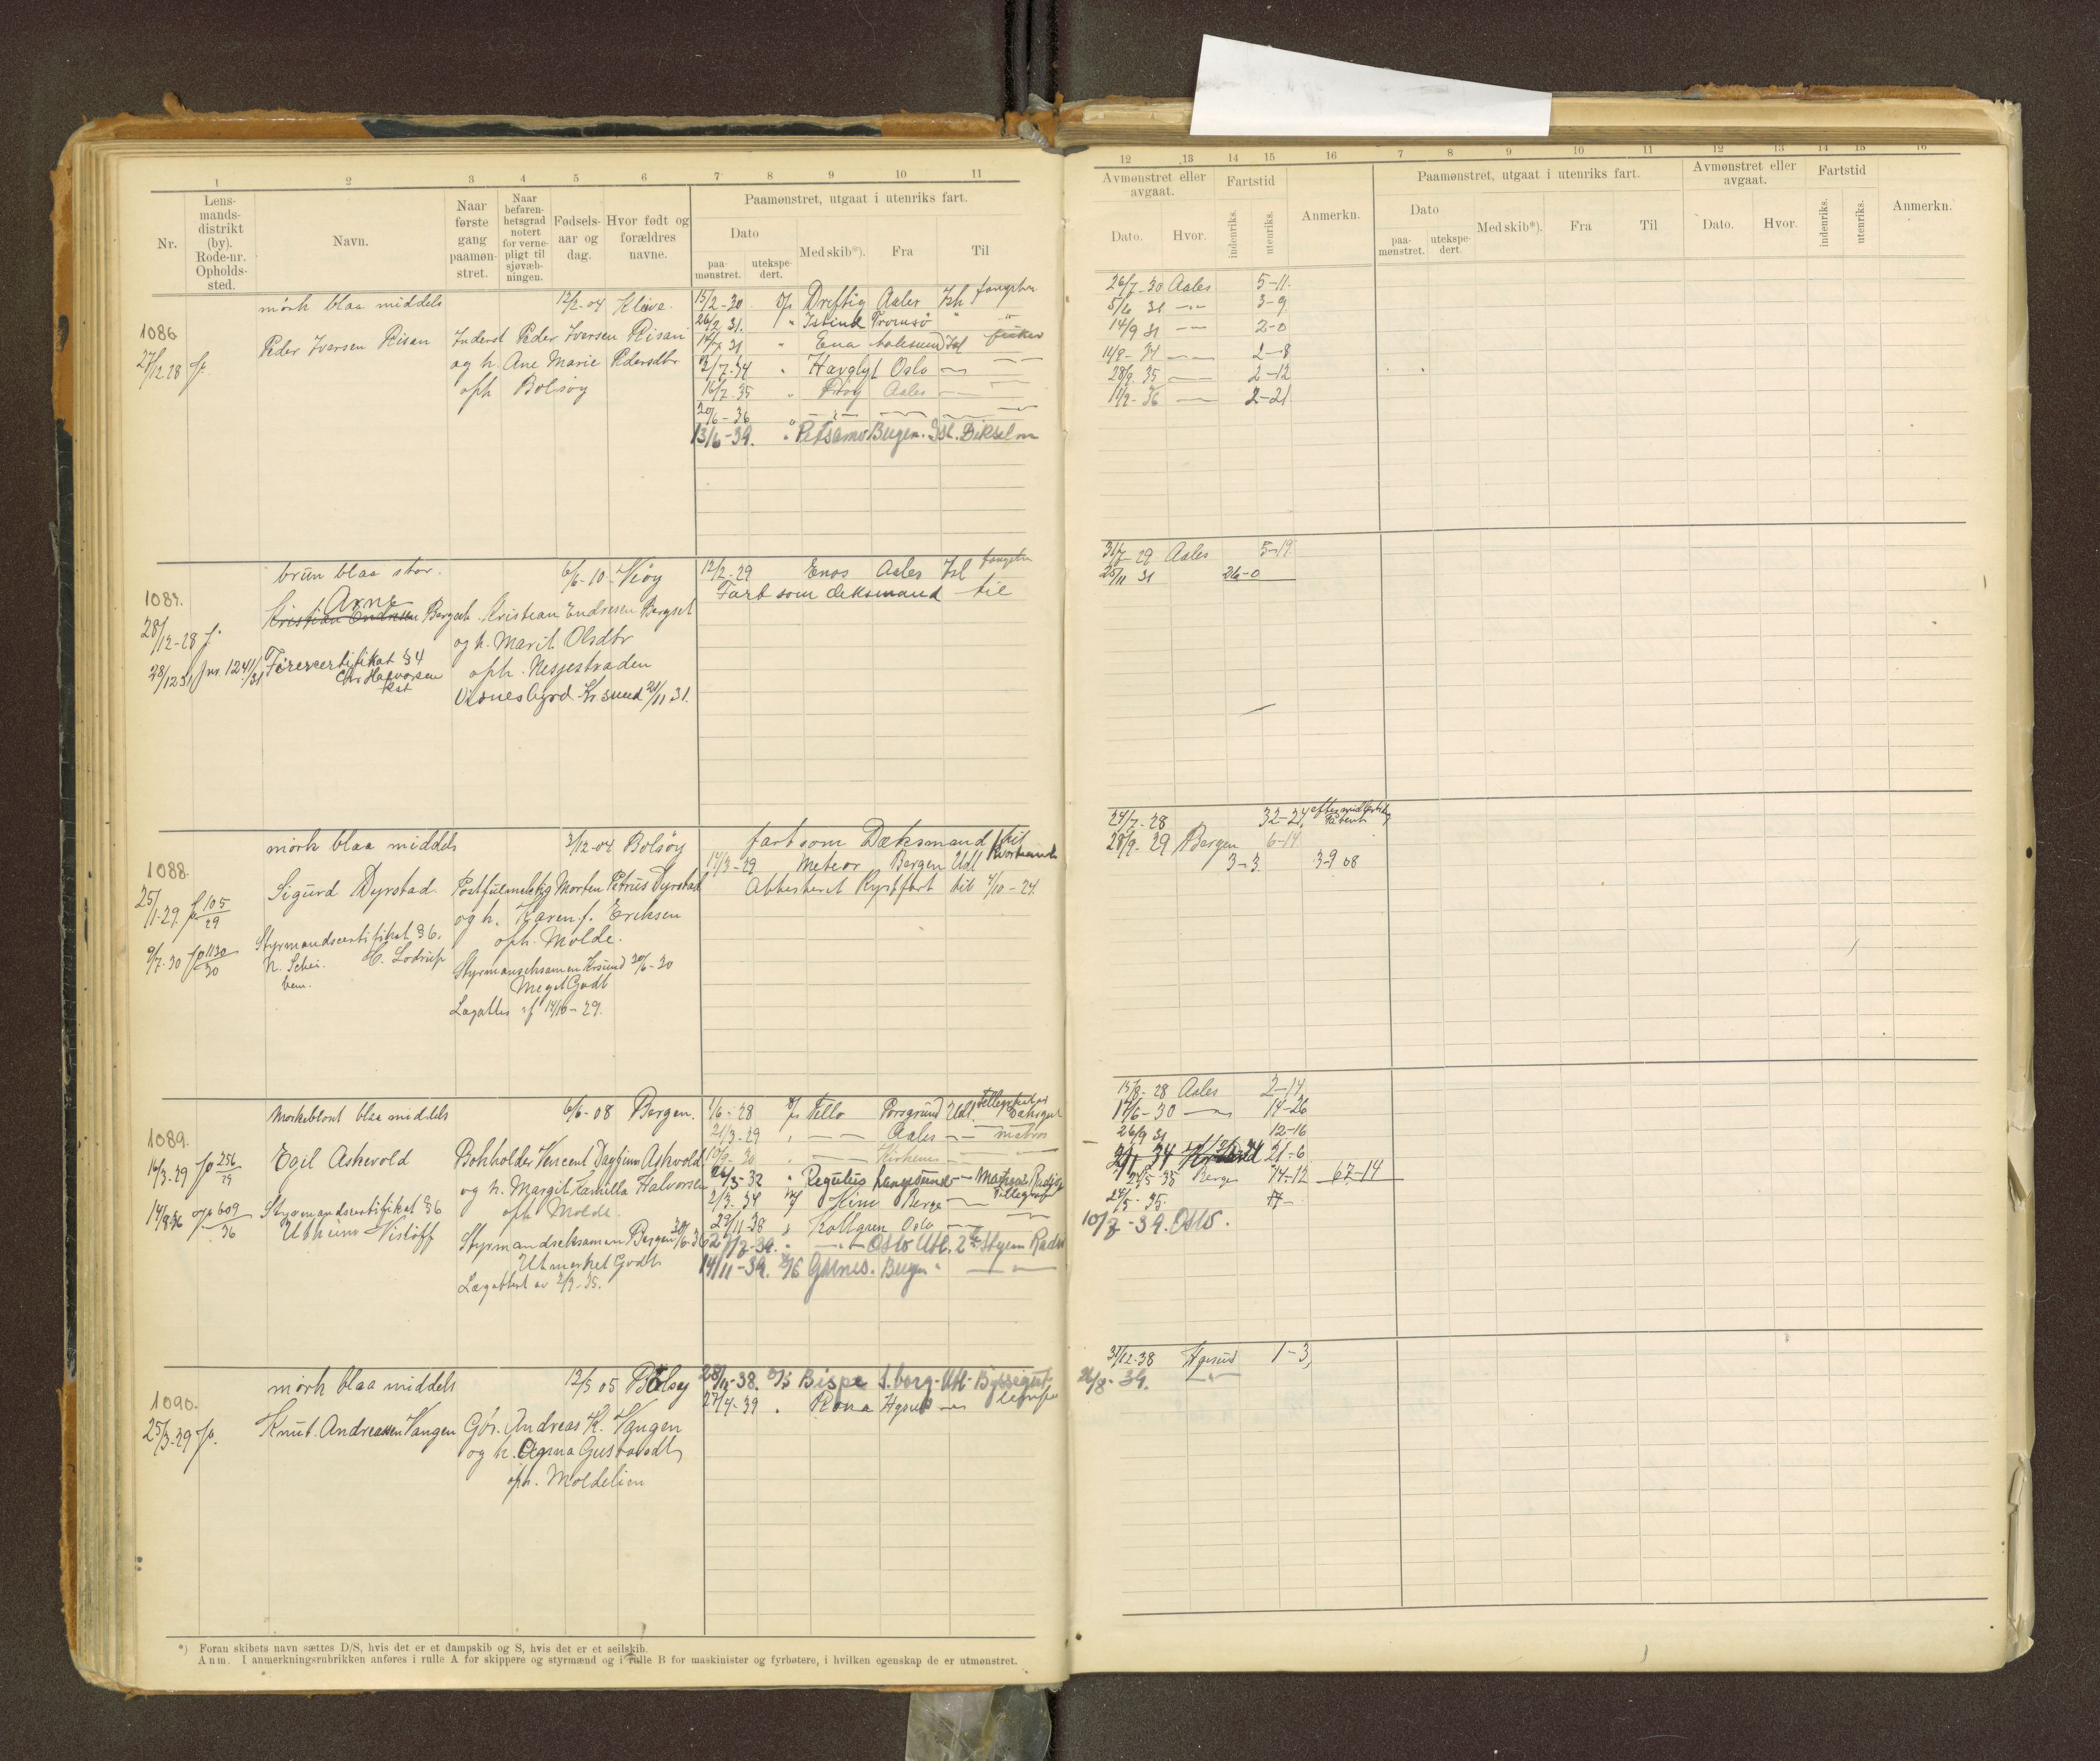 1 2 3 4 5 6 7 8 9 10 11
Nr. Lens-mands-distrikt (by). Rode-nr. Opholds-sted. Navn. Naar første gang paamøn-stret. Naar befaren-hetsgrad notert for verne-pligt til sjøvæb-ningen. Fødsels-aar og dag. Hvor født og forældres navne. Paamønstret, utgaat i utenriks fart.
Dato Med skib*). Fra Til
paa-mønstret. utekspe-dert.
mörk blaa middels 12/2-04 Kleive. 15/2-30 D/s Driftig Aales Ish fangstm
1086 26/2 31. " Isbink Tromsö " "
Peder Iversen Risan Inderst Peder Iversen Risan 31 " Ena Aalesund Isl fisker
27/12 28 og h. Ane Marie Pedersdtr 2/7-34 " Havglyt Oslo
oph Bolsöy 16/7-35 " Aales
20/6-36 "
13/6-39. " Petsamo Bergen. Isl.
brun blaa stor. 6/6-10 Veöy 12/2-29 Enos Aales Isl fangstm
1087. Arne Fart som deksmand til
Kristian Endresen Bergset Kristian Endresen Bergset
28/12-28 og h. Marit Olsdtr
28/12 31 jnr. 1241/31 Förercertifikat §4 oph. Nesjestraden
Chr Halvorsen
Kst Kr.sund 21/11 31.
mörk blaa middels 3/12-04 Bolsöy fart som Dæksmand til
1088. 14/3-29 Meteor Bergen Utl
Sigurd Dyrstad. Postfulmektig Morten Petrus Dyrstad Attesteret Kystfart til 4/10-24.
25/1-29. 105/29 og h. Karen f. Eriksen
oph. Molde.
Styrmandscertifikat §6.
9/7-30 1130/30 N. Schei. C. Lodrup Styrmanseksamen Krsund 20/6-30
Meget Godt
14/10-29.
Mörkeblont blaa middels 6/6-08 Bergen. 1/6-28 D/s Tello Porsgrund Utl.
1089. 21/3-29 " Aales matros
Egil Askevold Bokholder Vincent Dagfinn Askvold Kirkenes
16/3-29 256/29 og h. Margit Kamilla Halvorsen 26/3-32 " Regulus Langesund
oph Molde. 2/3-34 Heim Berge
14/8 36 609/36 Styrmandscertifikat §6 29/11-38 " Kollgrim Oslo
Utheim Nislöff Styrmandseksamen Bergen 30/6-36 Oslo Utl. 2 Styrm Radio
Utmerket Godt 14/11-39. D/S Garnes. Bergen "
2/3-35.
mörk blaa middels 12/5 05 Bolsöy 28/11-38. D/S Bispe S.borg. Utl. Byssegut
1090. 27/4-39 " Rona Hgsund
Knut Andreassen Vangen Gbr. Andreas K. Vangen
25/3-29 og h. Agma Gustavsdt
oph. Moldelien
*) Foran skibets navn sættes D/S, hvis det er et dampskib og S, hvis det er et seilskib.
Anm. I anmerkningsrubrikken anføres i rulle A for skippere og styrmænd og i rulle B for maskinister og fyrbøtere, i hvilken egenskap de er utmønstret.
12 13 14 15 16 7 8 9 10 11 12 13 14 15 16
Avmønstret eller avgaat. Fartstid Anmerkn. Paamønstret, utgaat i utenriks fart. Avmønstret eller avgaat. Fartstid Anmerkn.
Dato. Hvor. indenriks. utenriks. Dato Med skib*). Fra Til Dato. Hvor. indenriks. utenriks.
paa-mønstret. utekspe-dert.
26/7-30 Aales 5-11.
5/6 31 3-9
14/9 31 2-0
11/9-34 2-8
28/9. 35 2-12
11/9-36 2-21
31/7-29 Aales 5-19.
25/11 31 26-0
24/7-28 32-24,
28/9. 29 Bergen 6-14
3-3. 3-9 08
15/8-28 Aales 2-14,
17/6-30 14-26
26/9 31 12-16
34 21-6
2/5-35 Berge 14-12 67-14
24/5-35.
10/7-39. Oslo.
31/12-38 Hgsund 1-3,
26/8-39.